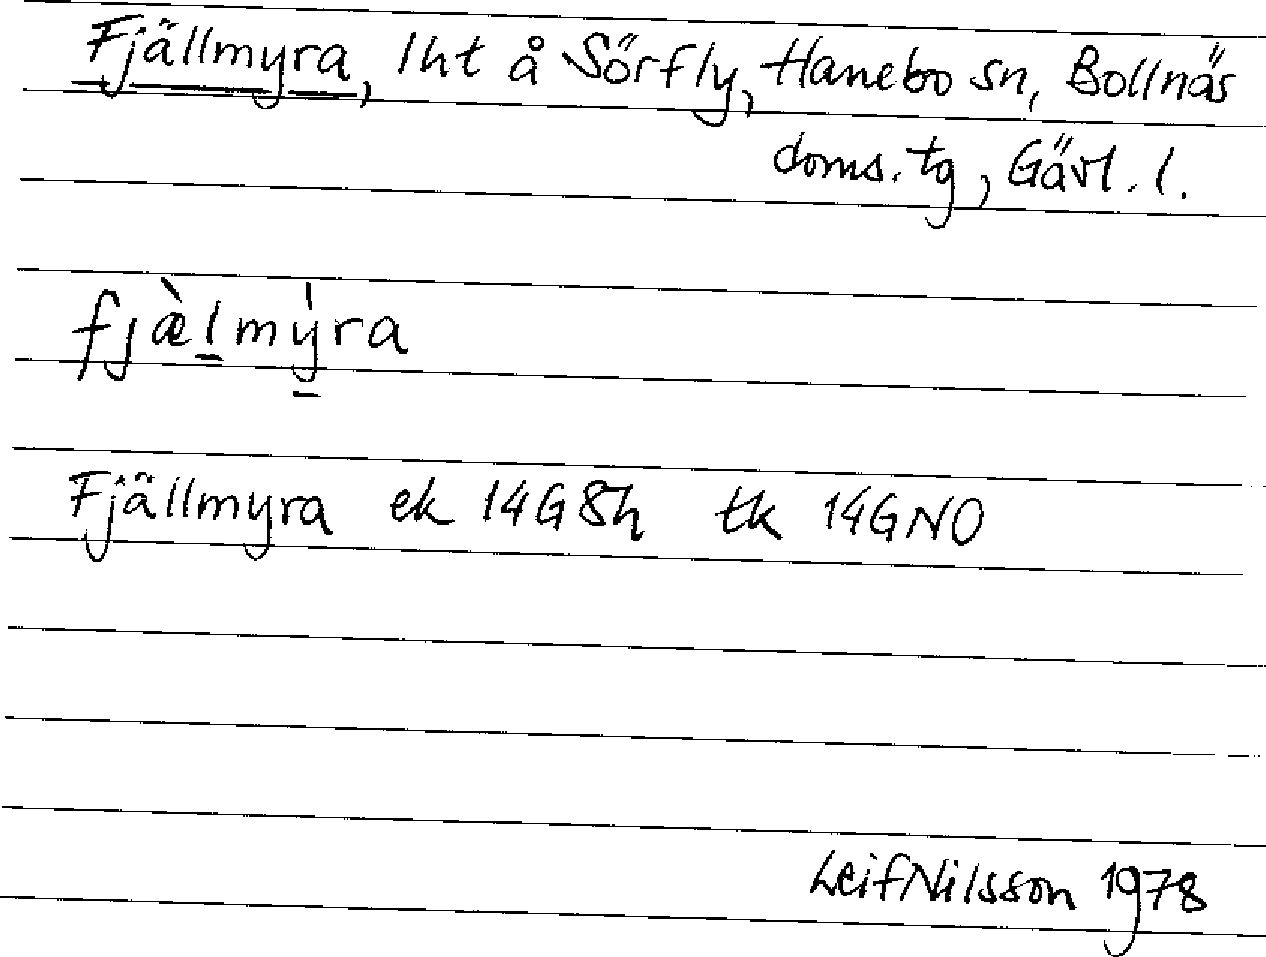 Fjällmyra, lht å Sörfly, Hanebo sn, Bollnäs
doms. tg, Gävl. l.
fjæ̀l̲mý̱ra
Fjällmyra ek 14G8h tk 14GNO
Leif Nilsson 1978